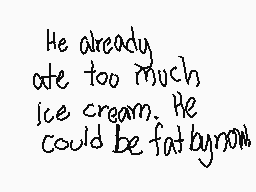 He already
ate too much
ice cream. He
could be fat by now